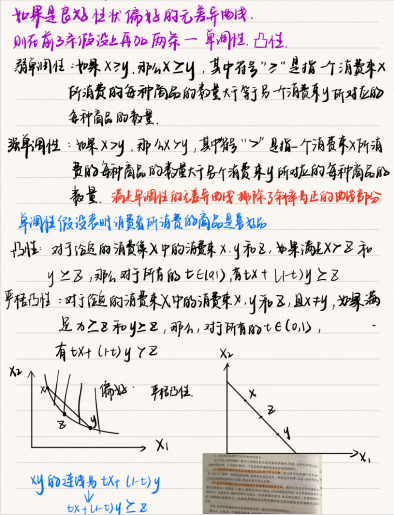 如果是良好性状偏好的无差异曲线.
则在前3条假设上再加两条—单调性.凸性.
弱单调性:如果X≥y,那么X≥y,其中符号“≥”是指一个消费束X
所消费的每种商品的数量大于等于另一个消费束y所对应的
每种商品的数量.
强单调性:如果X>y,那么X>y,其中符号“>”是指一个消费束X所消
费的每种商品的数量大于另个消费束y所对应的每种商品的
数量. 满足单调性的无差异曲线排除了斜率为正的曲线部分
单调性假设表明消费者所消费的商品是喜好品
凸性:对于给定的消费集X中的消费束X.y和Z,如果满足X≥Z和
y≥Z,那么对于所有的t∈[0,1),有tX+(1-t)y≥Z
严格凸性:对于给定的消费集X中的消费束X,y和Z,且X≠y,如果满
足X≥Z和y≥Z,那么,对于所有的t∈(0,1),
有tX+(1-t)y>Z
X2
偏好. 严格凸性.
X
Z
y
X1
X2
X
Z
y
X1
xy的连线为tX+(1-t)y
tX+(1-t)y≥Z